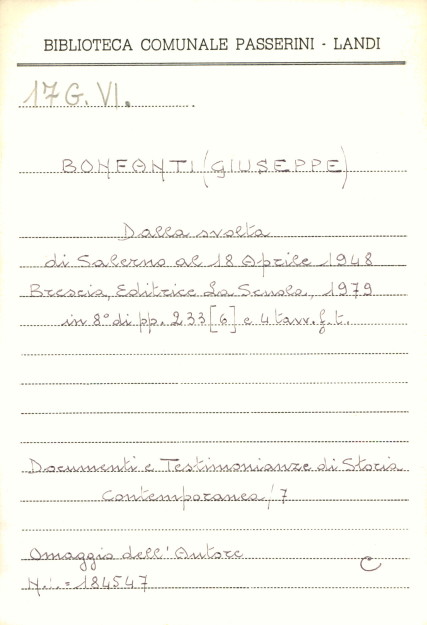 BIBLIOTECA COMUNALE PASSERINI - LANDI
17 G. VI.
BONFANTI (GIUSEPPE)
Dalla svolta
di Salerno al 18 Aprile 1948
Brescia, Editrice La Scuola, 1979
in 8° di pp. 233 [6] e 4 tavv. f. t.
Documenti e Testimonianze di Storia
Contemporanea / 7
Omaggio dell' Autore
C
N. i. = 184547